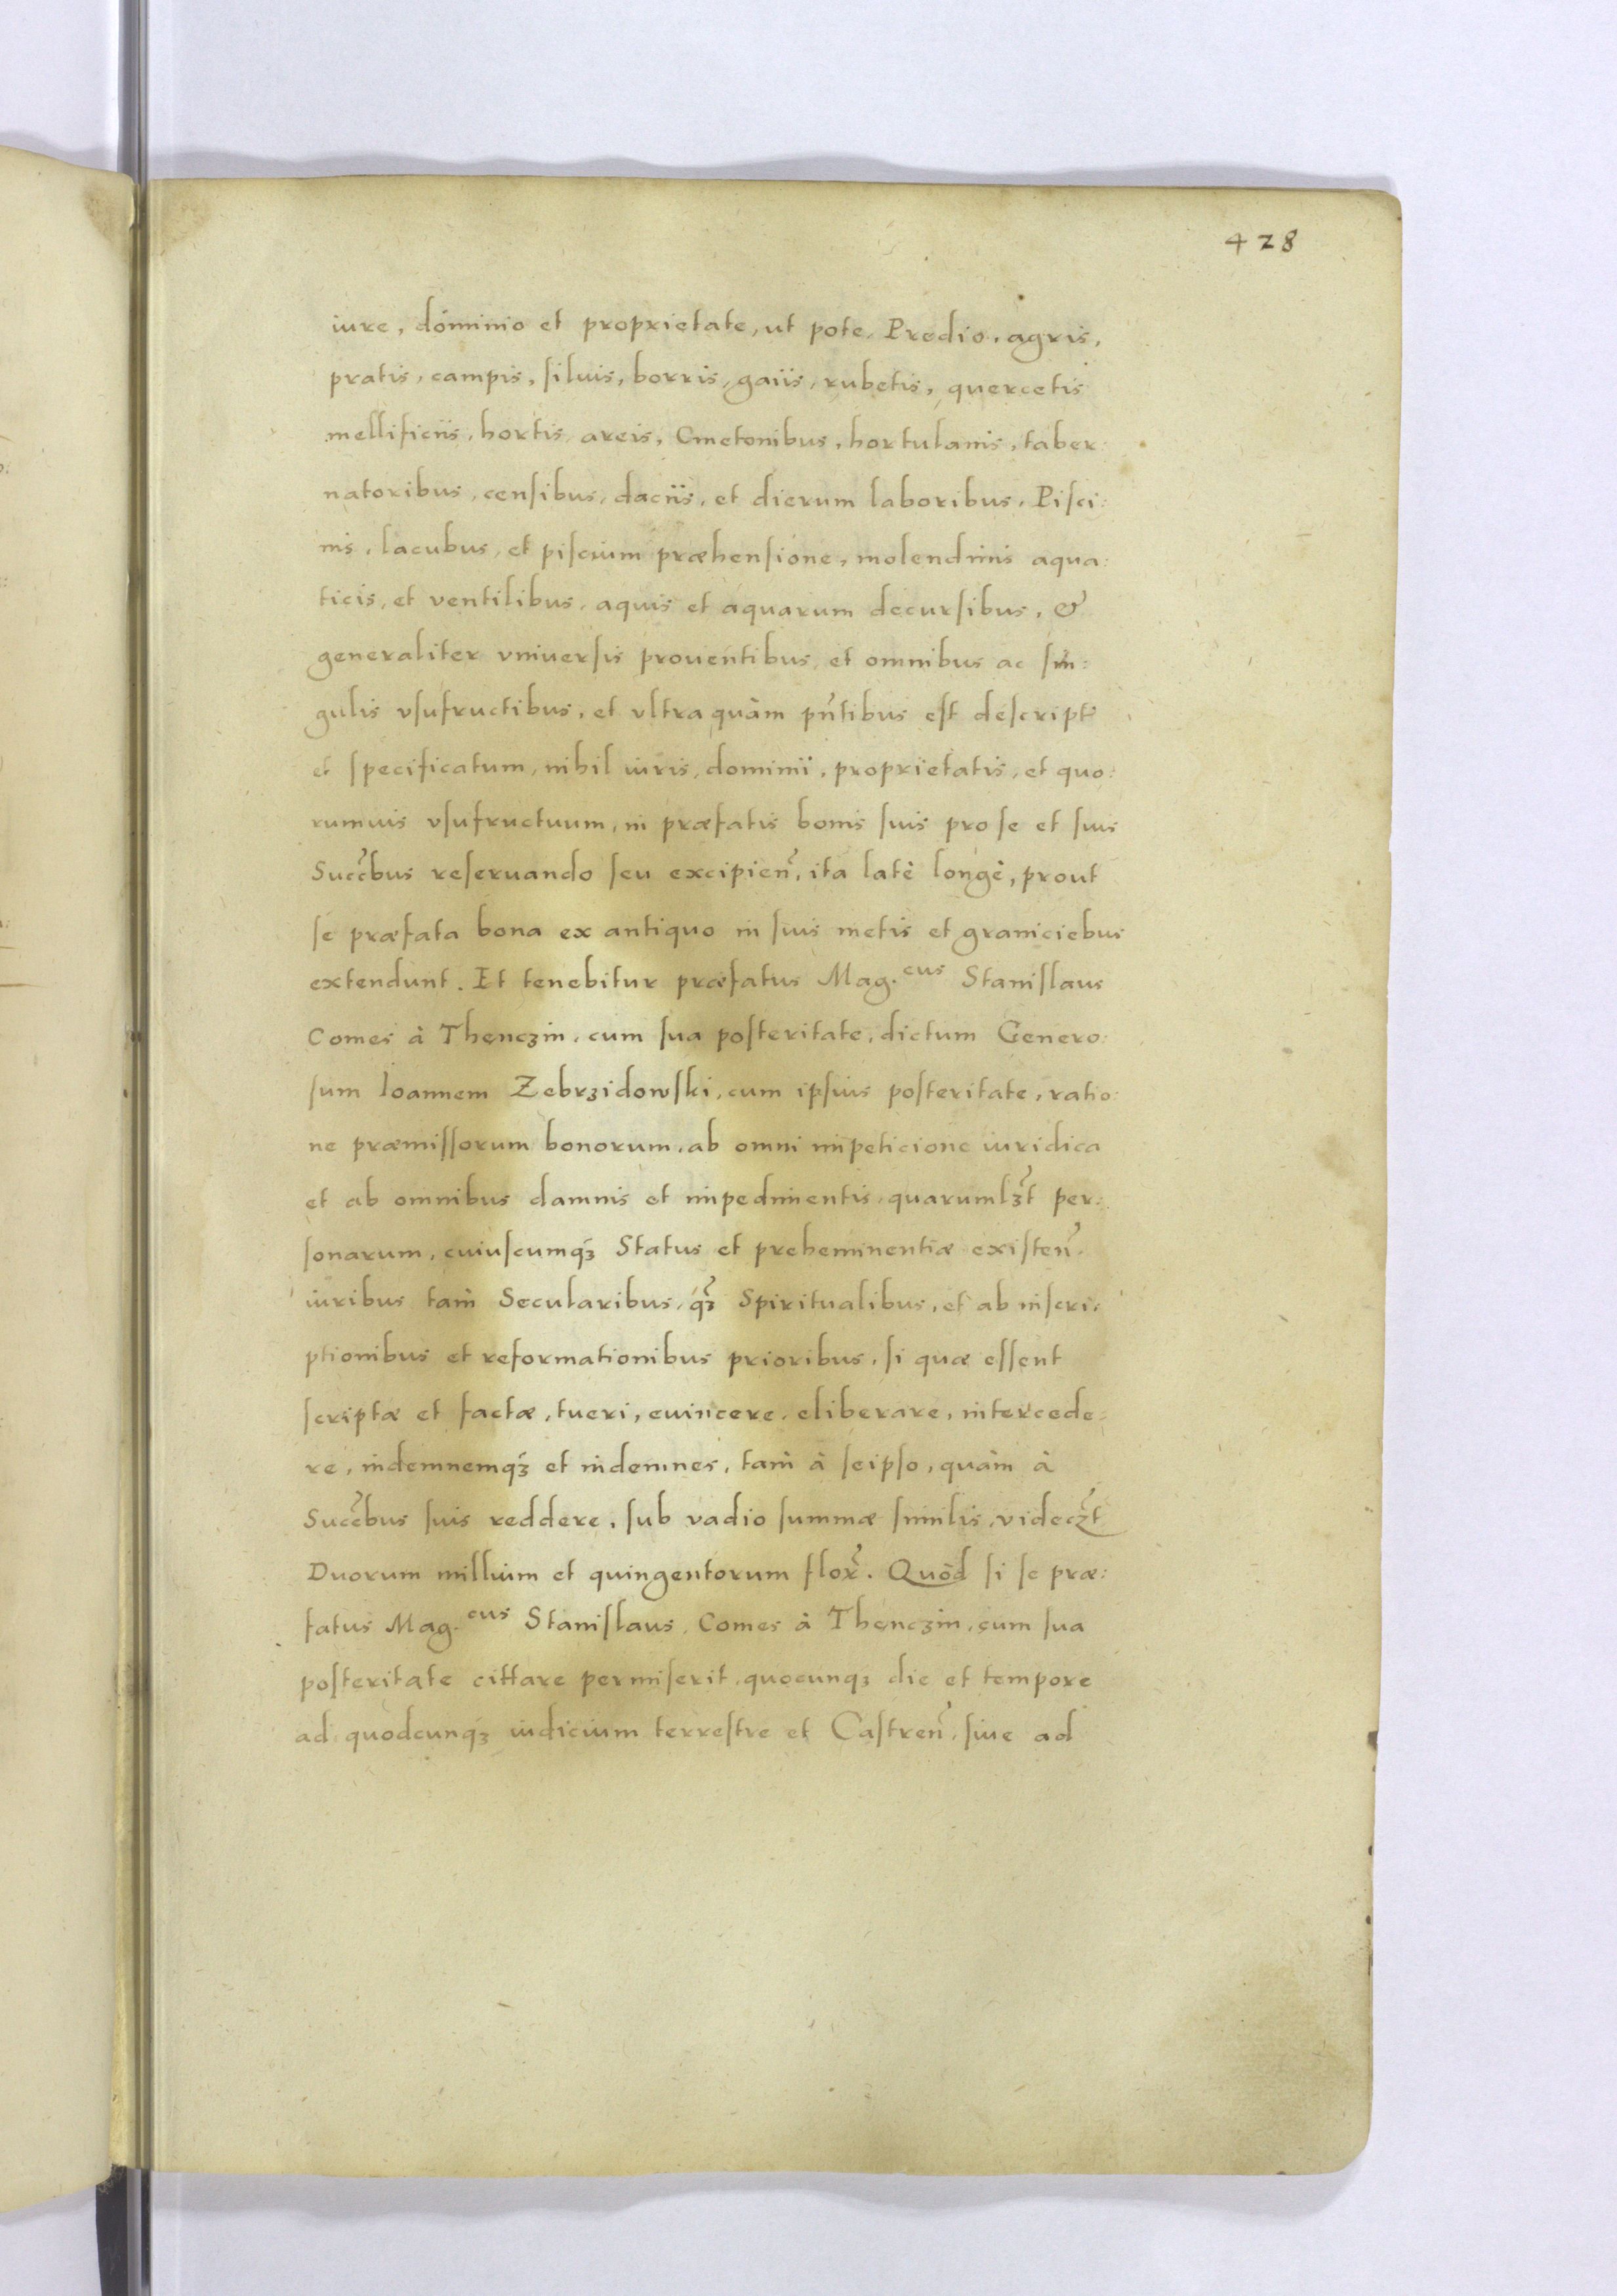 428
iure, dominio et proprietate, ut pote, Predio, agris,
pratis, campis, siluis, borris, gaiis, rubetis, quercetis
mellificiis, hortis, areis, Cmetonibus, hortulanis, taber:
natoribus, censibus, daciis, et dierum laboribus, Pisci:
nis, lacubus, et piscium præhensione, molendinis aqua:
ticis, et ventilibus, aquis et aquarum decursibus, &
generaliter vniuersis prouentibus, et omnibus ac sin:
gulis vsufructibus, et vltra quàm pñtibus est descriptũ
et specificatum, nihil iuris, dominii, proprietatis, et quo:
rumuis vsufructuum, in præfatis bonis suis pro se et suis
Succ̃bus reseruando seu excipień, ita latè longè, prout
se præfata bona ex antiquo in suis metis et graniciebus
extendunt. Et tenebitur præfatus Mag.cus Stanislaus
Comes à Thenczin, cum sua posteritate, dictum Genero:
sum Ioannem Zebrzidowski, cum ipsius posteritate, ratio:
ne præmissorum bonorum, ab omni impeticione iuridica
et ab omnibus damnis et impedimentis, quarumlꝫt per:
sonarum, cuiuscumqꝫ Status et preheminentiæ existeñ,
iuribus tam Secularibus, qꝫ Spiritualibus, et ab inscri:
ptionibus et reformationibus prioribus, si quæ essent
scriptæ et factæ, tueri, euincere, eliberare, intercede:
re, indemnemqꝫ et indemnes, tam à seipso, quàm à
Succ̃bus suis reddere, sub vadio summæ similis, videcꝫt
Duorum millium et quingentorum flor̃. Quòd si se præ:
fatus Mag.cus Stanislaus, Comes à Thenczin, cum sua
posteritate cittare permiserit, quocunqꝫ die et tempore
ad quodcunqꝫ iudicium terrestre et Castreñ, siue ad